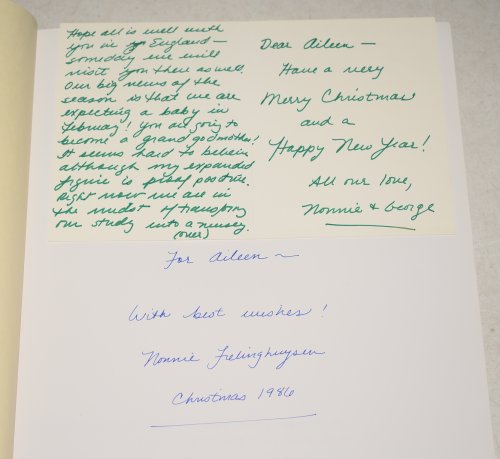 Hope all is well with
you in England —
someday we will
visit you there as well.
Our big news of the
season is that we are
expecting a baby in
February! You are going to
become a grand godmother!
It seems hard to believe
although my expanded
figure is proof positive.
Right now we are in
the midst of transforming
our study into a nursery.
(over)
Dear Aileen —
Have a very
Merry Christmas
and a
Happy New Year!
All our love,
Nonnie & George
For Aileen ~
With best wishes!
Nonnie Frelinghuysen
Christmas 1986